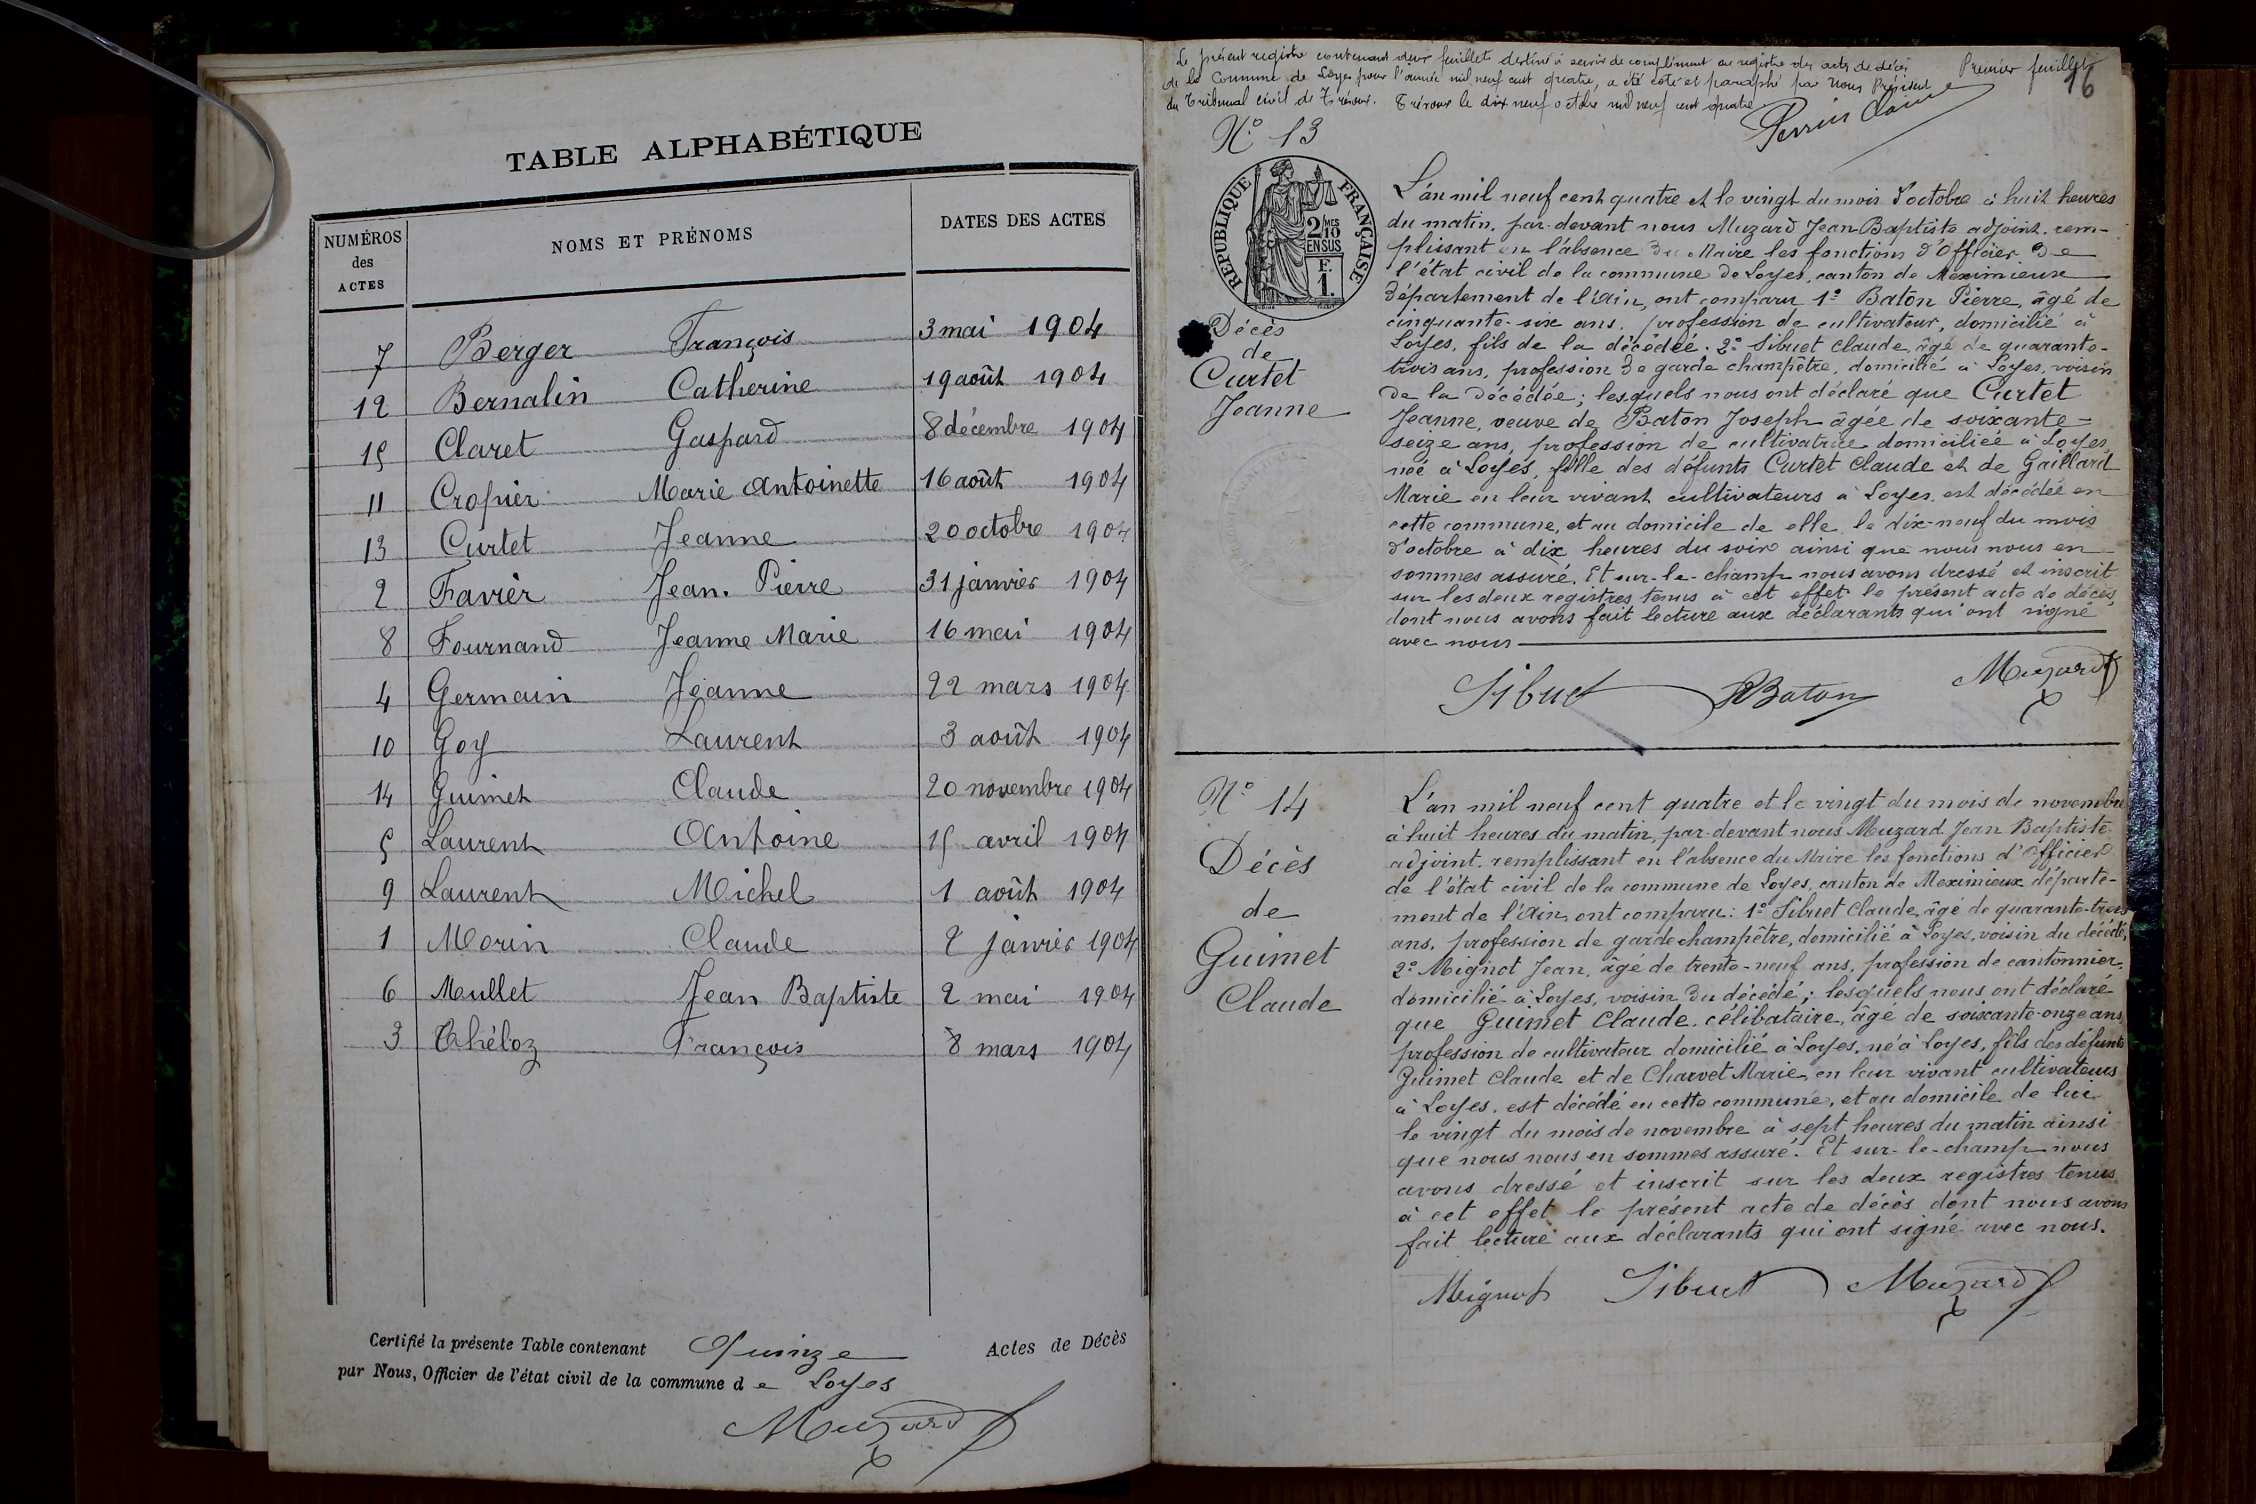 TABLE ALPHABÉTIQUE
NUMÉROS des ACTES NOMS ET PRÉNOMS DATES DES ACTES
7 Berger François 3 mai 1904
12 Bernalin Catherine 19 août 1904
15 Claret Gaspard 8 décembre 1904
11 Cropier Marie Antoinette 16 août 1904
13 Curtet Jeanne 20 octobre 1904
2 Favier Jean. Pierre 31 janvier 1904
8 Fournand Jeanne Marie 16 mai 1904
4 Germain Jeanne 22 mars 1904
10 Goy Laurent 3 août 1904
14 Guimet Claude 20 novembre 1904
5 Laurent Antoine 15 avril 1904
9 Laurent Michel 1 août 1904
1 Morin Claude 2 janvier 1904
6 Mullet Jean Baptiste 2 mai 1904
3 Théloz François 8 mars 1904
Certifié la présente Table contenant Quinze Actes de Décès
par Nous, Officier de l'état civil de la commune de Loyes
Muzard
Le présent registre contenant deux feuillets destiné à servir de complément au registre des actes de décès
de la Commune de Loyes pour l'année mil neuf cent quatre, a été coté et paraphé par Nous Président
du Tribunal civil de Trévoux. Trévoux le dix neuf octobre mil neuf cent quatre
Premier feuillet
16
Perrin
N° 13
RÉPUBLIQUE FRANÇAISE
2 MES
10
EN SUS
F.
1.
Décès
de
Curtet
Jeanne
L'an mil neuf cent quatre et le vingt du mois d'octobre à huit heures
du matin, par-devant nous Muzard Jean-Baptiste adjoint, rem-
plissant en l'absence du Maire les fonctions d'Officier de
l'état civil de la commune de Loyes, canton de Meximieux
département de l'Ain, ont comparu 1° Baton Pierre, âgé de
cinquante-six ans, profession de cultivateur, domicilié à
Loyes, fils de la décédée. 2° Sibuet Claude, âgé de quarante-
trois ans, profession de garde champêtre, domicilié à Loyes, voisin
de la décédée; lesquels nous ont déclaré que Curtet
Jeanne, veuve de Baton Joseph âgée de soixante-
seize ans, profession de cultivatrice domiciliée à Loyes,
née à Loyes, fille des défunts Curtet Claude et de Gaillard
Marie en leur vivant cultivateurs à Loyes, est décédée en
cette commune, et au domicile de elle le dix-neuf du mois
d'octobre à dix heures du soir ainsi que nous nous en
sommes assuré. Et sur-le-champ nous avons dressé et inscrit
sur les deux registres tenus à cet effet le présent acte de décès,
dont nous avons fait lecture aux déclarants qui ont signé
avec nous
Sibuet PBaton Muzard
N° 14
Décès
de
Guimet
Claude
L'an mil neuf cent quatre et le vingt du mois de novembre
à huit heures du matin, par-devant nous Muzard Jean Baptiste
adjoint, remplissant en l'absence du Maire les fonctions d'Officier
de l'état civil de la commune de Loyes, canton de Meximieux départe-
ment de l'Ain, ont comparu: 1° Sibuet Claude, âgé de quarante-trois
ans, profession de garde champêtre, domicilié à Loyes, voisin du décédé,
2° Mignot Jean, âgé de trente-neuf ans, profession de cantonnier,
domicilié à Loyes, voisin du décédé; lesquels nous ont déclaré
que Guimet Claude, célibataire, âgé de soixante-onze ans,
profession de cultivateur domicilié à Loyes, né à Loyes, fils des défunts
Guimet Claude et de Charvet Marie, en leur vivant cultivateurs
à Loyes, est décédé en cette commune, et au domicile de lui
le vingt du mois de novembre à sept heures du matin ainsi
que nous nous en sommes assuré. Et sur-le-champ nous
avons dressé et inscrit sur les deux registres tenus
à cet effet le présent acte de décès dont nous avons
fait lecture aux déclarants qui ont signé avec nous.
Mignot Sibuet Muzard